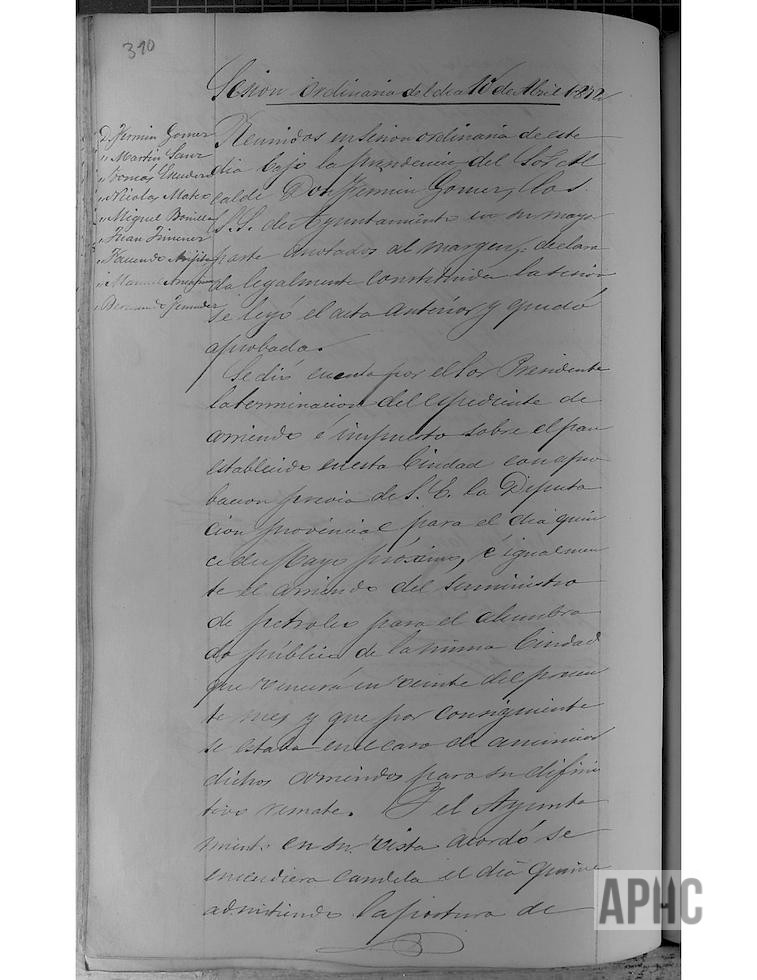 390
Sesion ordinaria del dia 10 de Abril 1872
D. Fermin Gomez
" Martin Sanz
" Tomás
" Nicolas Mateo
" Miguel Bonilla
" Juan Jimenez
" Facundo
" Manuel
" Bernardo Jimenez
Reunidos en sesion ordinaria de este
dia bajo la presidencia del Sor. Al
calde Don Fermin Gomez, los
S.S. de Ayuntamiento en su mayor
parte anotados al margen, declara
da legalmente constituida la sesion
se leyó el acta anterior y quedó
aprobada.
Se dió cuenta por el Sor Presidente
la terminacion del espediente de
arriendo é impuesto sobre el pan
establecido en esta Ciudad con apro
bacion previa de S. E. la Diputa
cion provincial para el dia quin
ce de Mayo próximo, é igualmen
te el arriendo del suministro
de petroleo para el alumbra
do público de la misma Ciudad
que vencerá en veinte del presen
te mes y que por consiguiente
se estaba en el caso de anunciar
dichos arriendos para su difini
tivo remate. Y el Ayunta
miento en su vista acordó se
encendiera candela el dia quince
admitiendo la postura de
APHC